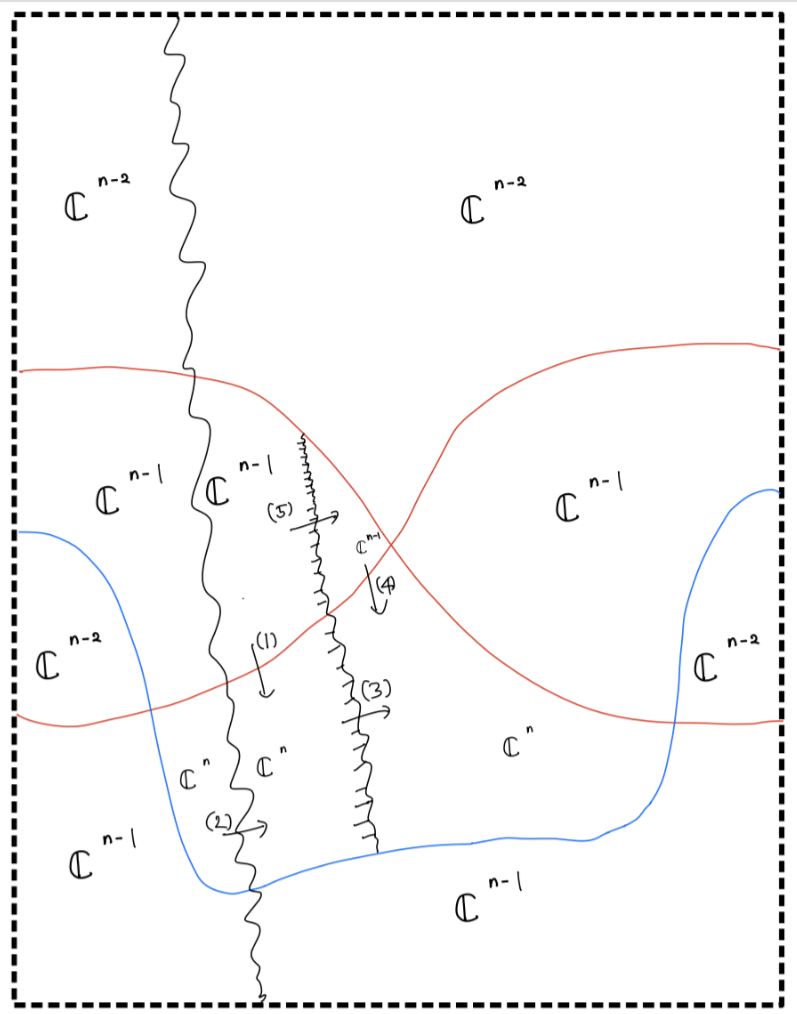 ℂⁿ⁻²
ℂⁿ⁻²
ℂⁿ⁻¹
ℂⁿ⁻¹
ℂⁿ⁻¹
(5)
ℂⁿ⁻¹
(4)
(1)
ℂⁿ⁻²
ℂⁿ⁻²
(3)
ℂⁿ
ℂⁿ
ℂⁿ
(2)
ℂⁿ⁻¹
ℂⁿ⁻¹